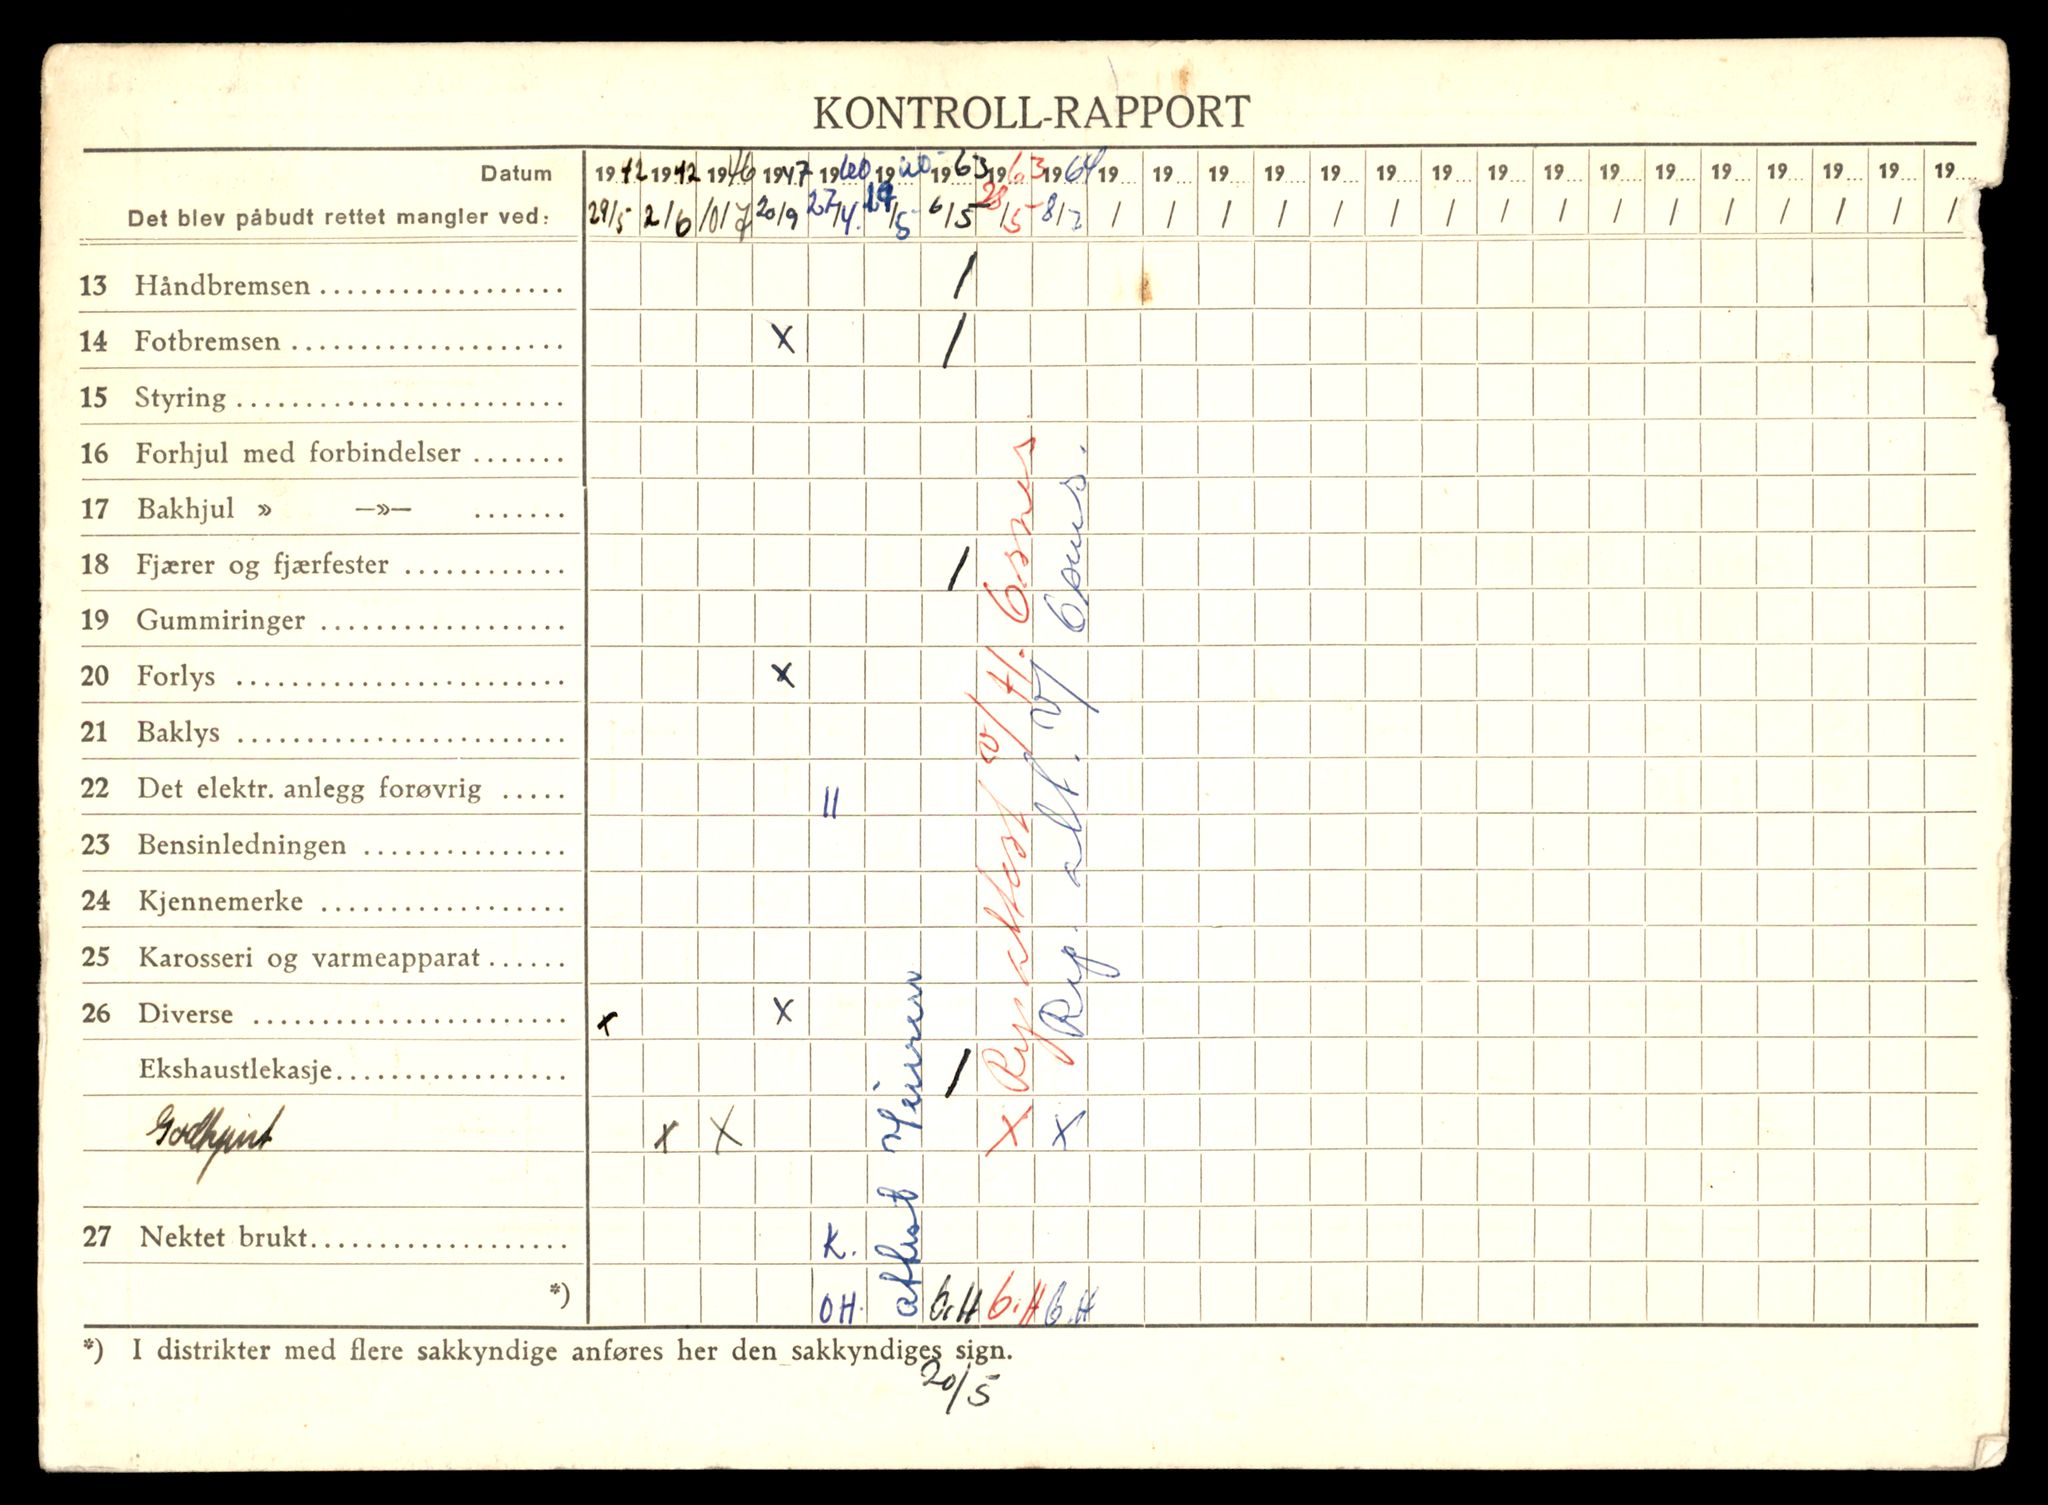 KONTROLL-RAPPORT
Datum 1942 1942 1946 1947 1960 1960 1963 1963 1964 19... 19... 19... 19... 19... 19... 19... 19... 19... 19... 19... 19... 19... 19... 19... 19...
Det blev påbudt rettet mangler ved: 29/5 2/6 10/7 20/9 27/4. /5 6/5 28/5 8/2 / / / / / / / / / / / / / / / /
13 Håndbremsen .................. /
14 Fotbremsen .................... x /
15 Styring ........................
16 Forhjul med forbindelser .......
17 Bakhjul » —»— .......
18 Fjærer og fjærfester ............ /
19 Gummiringer ..................
20 Forlys ........................ x
21 Baklys ........................
22 Det elektr. anlegg forøvrig ..... II
23 Bensinledningen ...............
24 Kjennemerke ..................
25 Karosseri og varmeapparat ......
26 Diverse ....................... x x
Ekshaustlekasje ................. /
Godkjent x x x x
27 Nektet brukt ................... K.
*) OH. G.H G.H G.H
attest
Rep. attest v/ H.
Rep. att. v/
*) I distrikter med flere sakkyndige anføres her den sakkyndiges sign.
20/5